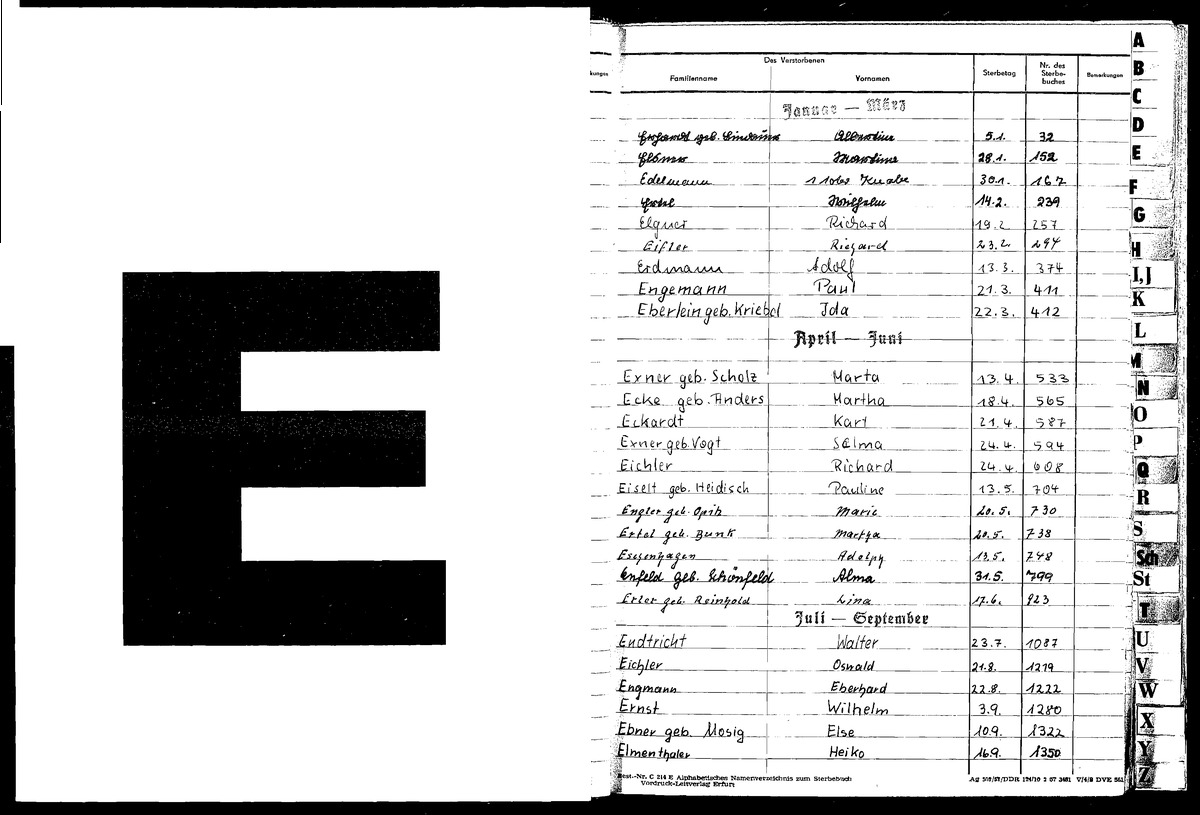 E
Des Verstorbenen
kungen Familienname Vornamen Sterbetag Nr. des Sterbe- buches Bemerkungen
Januar — März
geb. Albertine 5.1. 32
28.1. 152
Edelmann Knabe 30.1. 167
Wilhelm 14.2. 239
Elgner Richard 19.2. 257
Eifler Richard 23.2. 294
Erdmann Adolf 13.3. 374
Engemann Paul 21.3. 411
Eberlein geb. Kriebel Ida 22.3. 412
April — Juni
Exner geb. Scholz Marta 13.4. 533
Ecke geb. Anders Martha 18.4. 565
Eckardt Karl 21.4. 587
Exner geb. Vogt Selma 24.4. 594
Eichler Richard 24.4. 608
Eiselt geb. Heidisch Pauline 13.5. 704
Engler geb. Opitz Marie 20.5. 730
Ertel geb. Bunk Martha 20.5. 738
Eschenhagen Adolph 13.5. 748
Enfeld geb. Schönfeld Alma 31.5. 799
Erler geb. Reinhold Lina 17.6. 923
Juli — September
Endtricht Walter 23.7. 1087
Eichler Oswald 21.8. 1219
Engmann Eberhard 22.8. 1222
Ernst Wilhelm 3.9. 1280
Ebner geb. Mosig Else 10.9. 1322
Elmenthaler Heiko 16.9. 1350
Best.-Nr. C 214 E Alphabetisches Namenverzeichnis zum Sterbebuch
Vordruck-Leitverlag Erfurt
A
B
C
D
E
F
G
H
I,J
K
L
M
N
O
P
Q
R
S
Sch
St
T
U
V
W
X
Y
Z